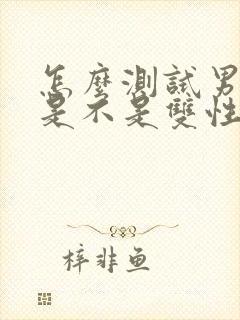 怎麼測試男
是不是雙性
梓非鱼